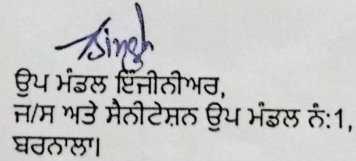 Singh
ਉਪ ਮੰਡਲ ਇੰਜੀਨੀਅਰ,
ਜ/ਸ ਅਤੇ ਸੈਨੀਟੇਸ਼ਨ ਉਪ ਮੰਡਲ ਨੰ:1,
ਬਰਨਾਲਾ।